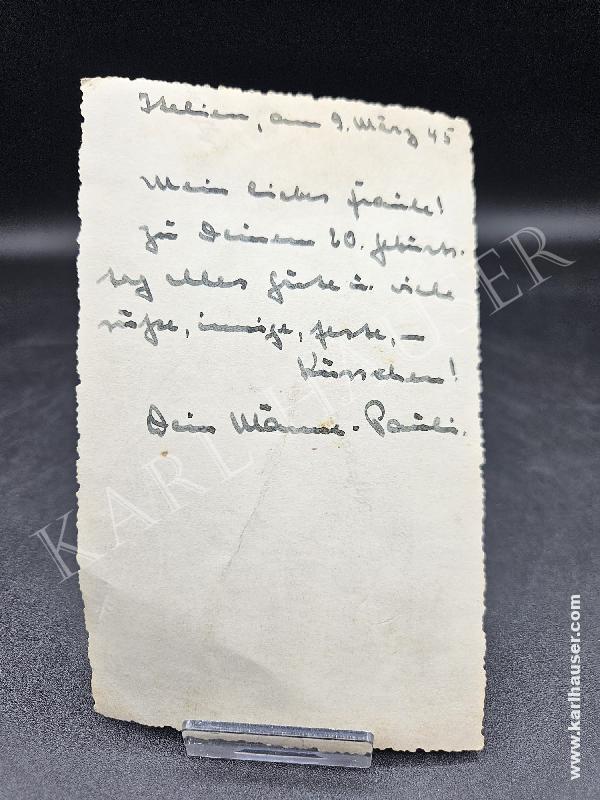 Italien, am 9. März 45
Mein liebes Fraule!
Zu Deinem 20. Geburts-
tag alles Gute u. viele
süße, innige, feste, –
Küsschen!
Dein Männe-Pauli.
KARL HAUSER
www.karlhauser.com